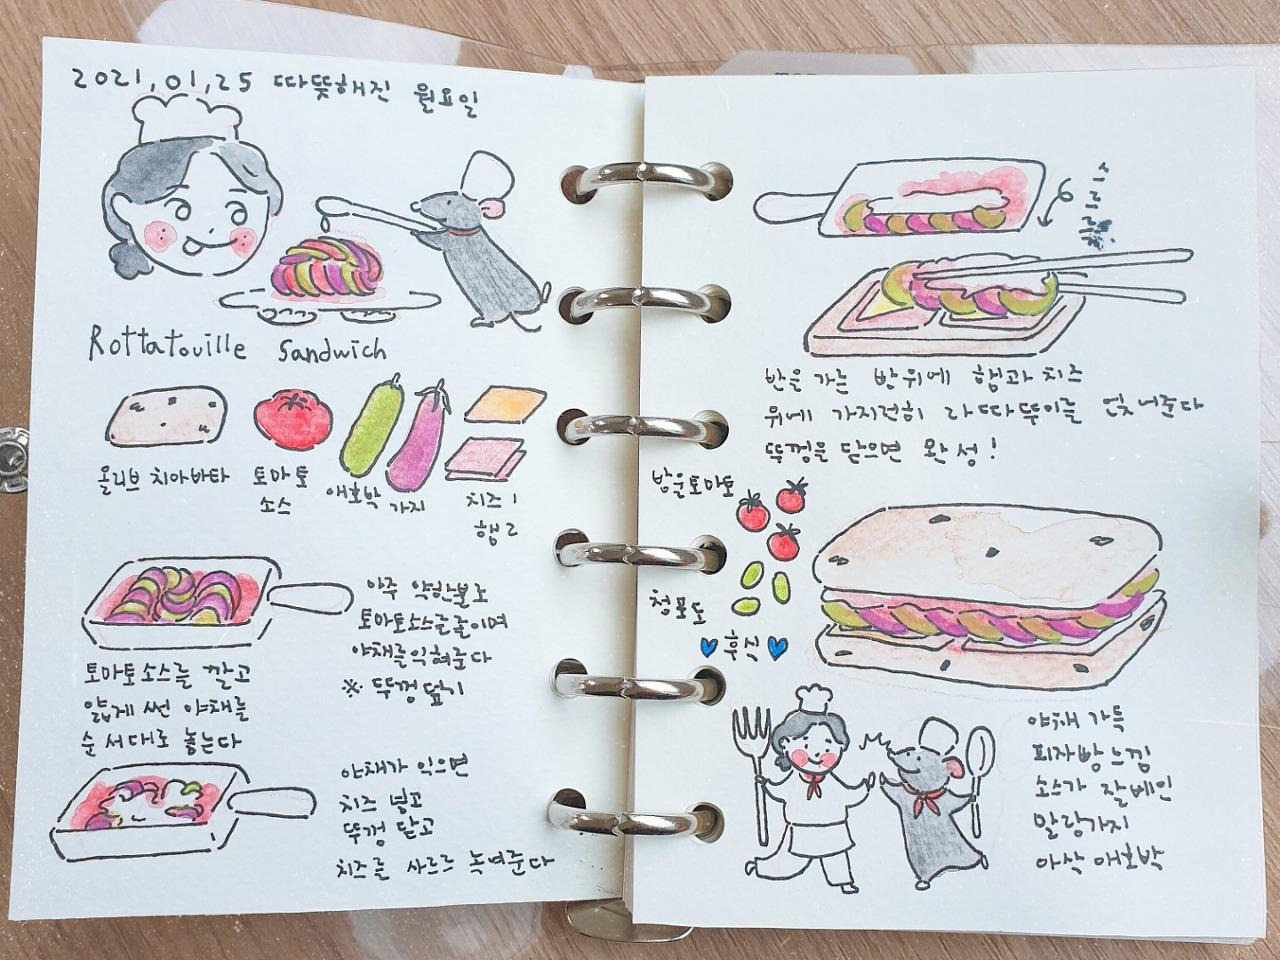 2021,01,25 따뜻해진 월요일
Rottatouille Sandwich
올리브 치아바타
토마토
소스
애호박
가지
치즈 1
햄 2
토마토소스를 깔고
얇게 썬 야채를
순서대로 놓는다
아주 약한불로
토마토소스를졸이며
야채를익혀준다
※ 뚜껑덮기
야채가 익으면
치즈 넣고
뚜껑 닫고
치즈를 사르르 녹여준다
스
르
르
반을 가른 빵위에 햄과 치즈
위에 가지런히 라따뚜이를 얹어준다
뚜껑을 닫으면 완성!
방울토마토
청포도
후식
야채 가득
피자빵느낌
소스가 잘베인
말랑가지
아삭 애호박